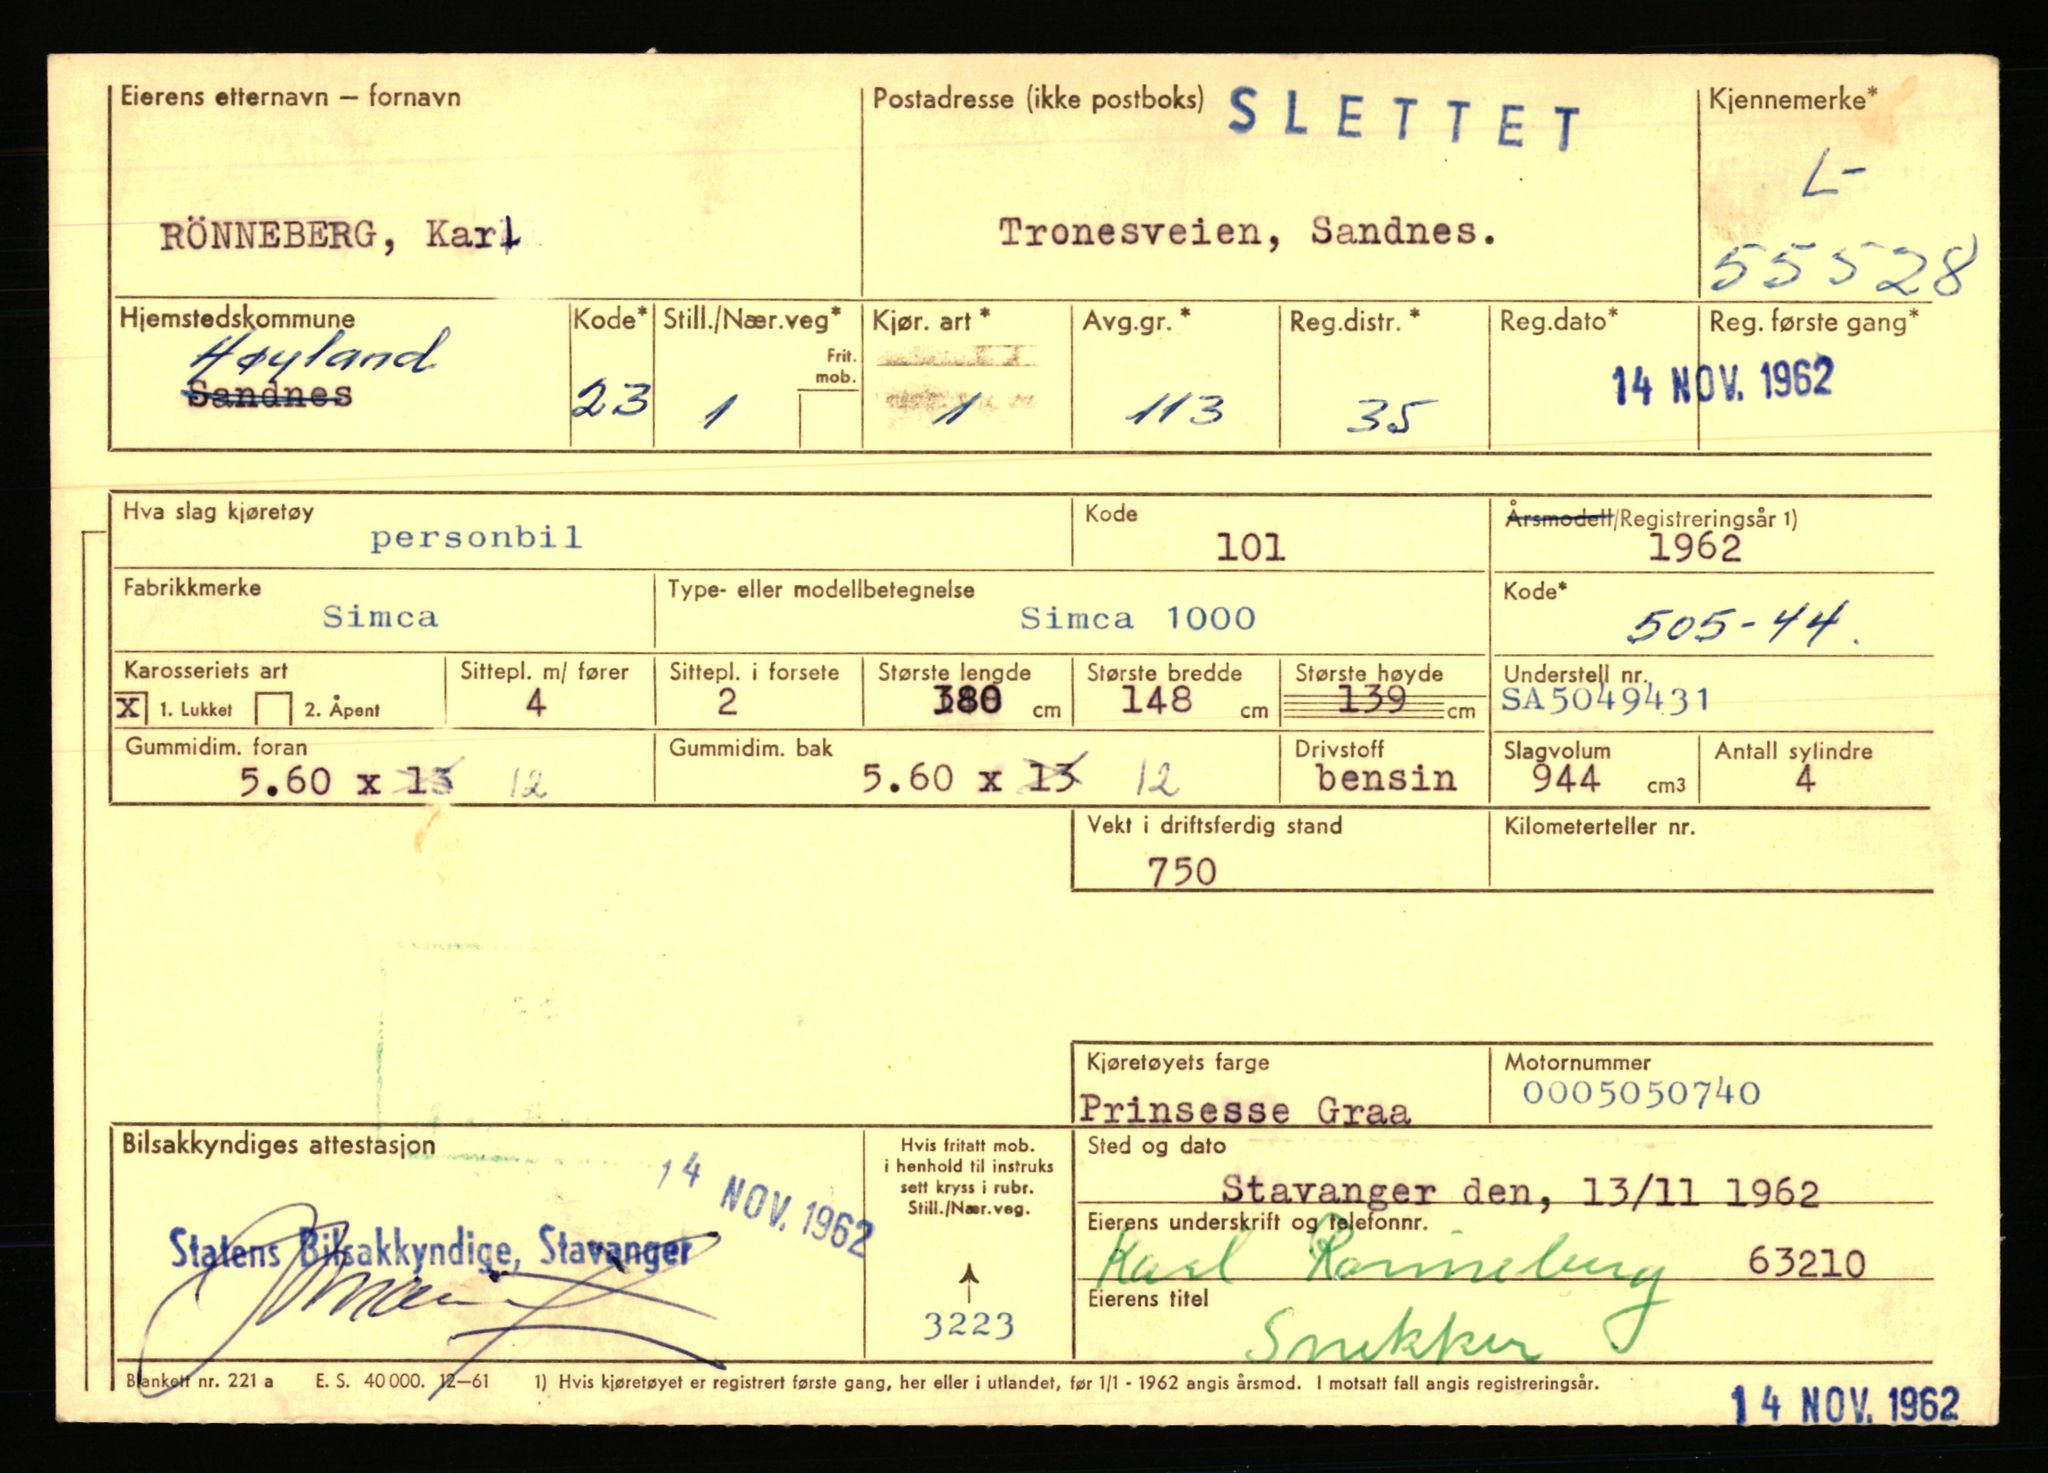 Eierens etternavn – fornavn
Postadresse (ikke postboks)
SLETTET
Kjennemerke*
L-
RÖNNEBERG, Karl
Tronesveien, Sandnes.
55528
Hjemstedskommune
Kode*
Still./Nær.veg*
Kjør. art *
Avg.gr. *
Reg.distr. *
Reg.dato*
Reg. første gang*
Frit. mob.
Høyland
Sandnes
23
1
1
113
35
14 NOV. 1962
Hva slag kjøretøy
personbil
Kode
101
Årsmodell/Registreringsår 1)
1962
Fabrikkmerke
Simca
Type- eller modellbetegnelse
Simca 1000
Kode*
505-44.
Karosseriets art
Sittepl. m/ fører
Sittepl. i forsete
Største lengde
Største bredde
Største høyde
Understell nr.
X 1. Lukket
2. Åpent
4
2
380 cm
148 cm
139 cm
SA5049431
Gummidim. foran
Gummidim. bak
Drivstoff
Slagvolum
Antall sylindre
5.60 x 13 12
5.60 x 13 12
bensin
944 cm3
4
Vekt i driftsferdig stand
Kilometerteller nr.
750
Kjøretøyets farge
Motornummer
Prinsesse Graa
0005050740
Bilsakkyndiges attestasjon
14 NOV. 1962
Statens Bilsakkyndige, Stavanger
Hvis fritatt mob.
i henhold til instruks
sett kryss i rubr.
Still./Nær.veg.
3223
Sted og dato
Stavanger den, 13/11 1962
Eierens underskrift og telefonnr.
Karl Rönneberg 63210
Eierens titel
Snekker
Blankett nr. 221 a E. S. 40 000. 12–61 1) Hvis kjøretøyet er registrert første gang, her eller i utlandet, før 1/1 - 1962 angis årsmod. I motsatt fall angis registreringsår.
14 NOV. 1962